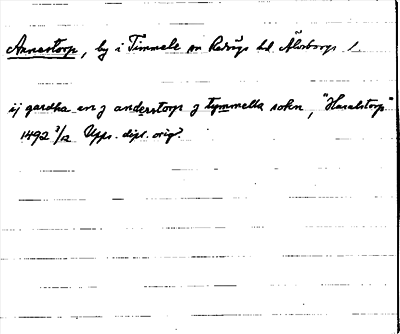 Annestorp, by i Timmele sn Redvägs hd Älvsborgs l
ij gardha en j anderstorp j tymmella sokn, "Haralstorp"
1492 3/12 Upps. dipl. orig?